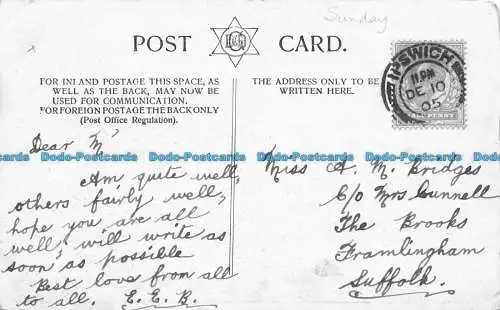 Sunday
POST CARD.
FOR INLAND POSTAGE THIS SPACE, AS
WELL AS THE BACK, MAY NOW BE
USED FOR COMMUNICATION.
FOR FOREIGN POSTAGE THE BACK ONLY
(Post Office Regulation).
THE ADDRESS ONLY TO BE
WRITTEN HERE.
IPSWICH
11.PM
DE 10
05
HALF PENNY
Dear M
Am quite well,
others fairly well,
hope you are all
well, will write as
soon as possible
Best love from all
to all. E. E. B.
Miss A. M. Bridges
C/o Mrs Cunnell
The Brooks
Framlingham
Suffolk.
Dodo-Postcards Dodo-Postcards Dodo-Postcards Dodo-Postcards